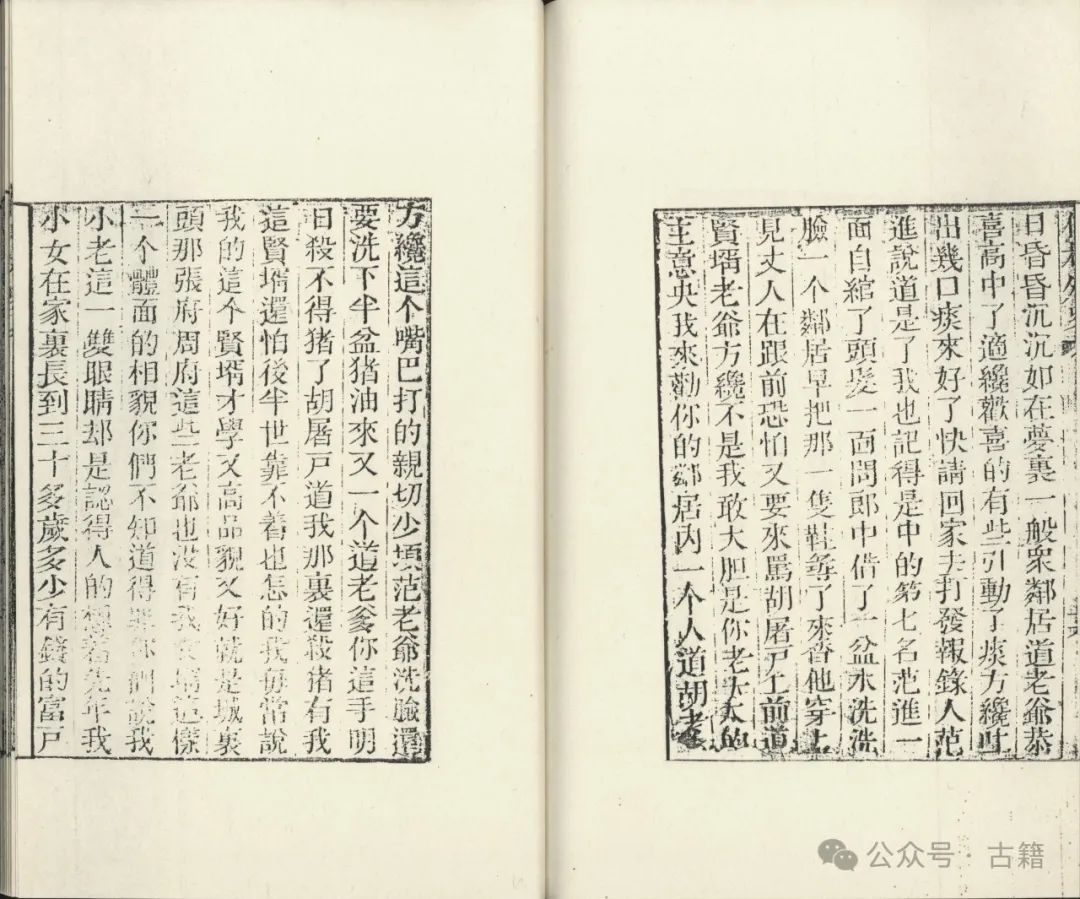 日昏昏沉沉如在夢裏一般衆鄰居道老爺恭
喜高中了適纔歡喜的有些引動了痰方纔吐
出幾口痰來好了快請回家去打發報錄人范
進說道是了我也記得是中的第七名范進一
面自綰了頭髮一面問郎中借了一盆水洗洗
臉一个鄰居早把那一隻鞋尋了來替他穿上
見丈人在跟前恐怕又要來罵胡屠戶上前道
賢壻老爺方纔不是我敢大胆是你老太太的
主意央我來勸你的鄰居內一个人道胡老爹
方纔這个嘴巴打的親切少頃范老爺洗臉還
要洗下半盆猪油來又一个道老爹你這手明
日殺不得猪了胡屠戶道我那裏還殺猪有我
這賢壻還怕後半世靠不着也怎的我每常說
我的這个賢壻才學又高品貌又好就是城裏
頭那張府周府這些老爺也没有我女壻這樣
一个體面的相貌你們不知道得罪你們說我
小老這一雙眼睛却是認得人的想着先年我
小女在家裏長到三十多歲多少有錢的富戶
公众号·古籍